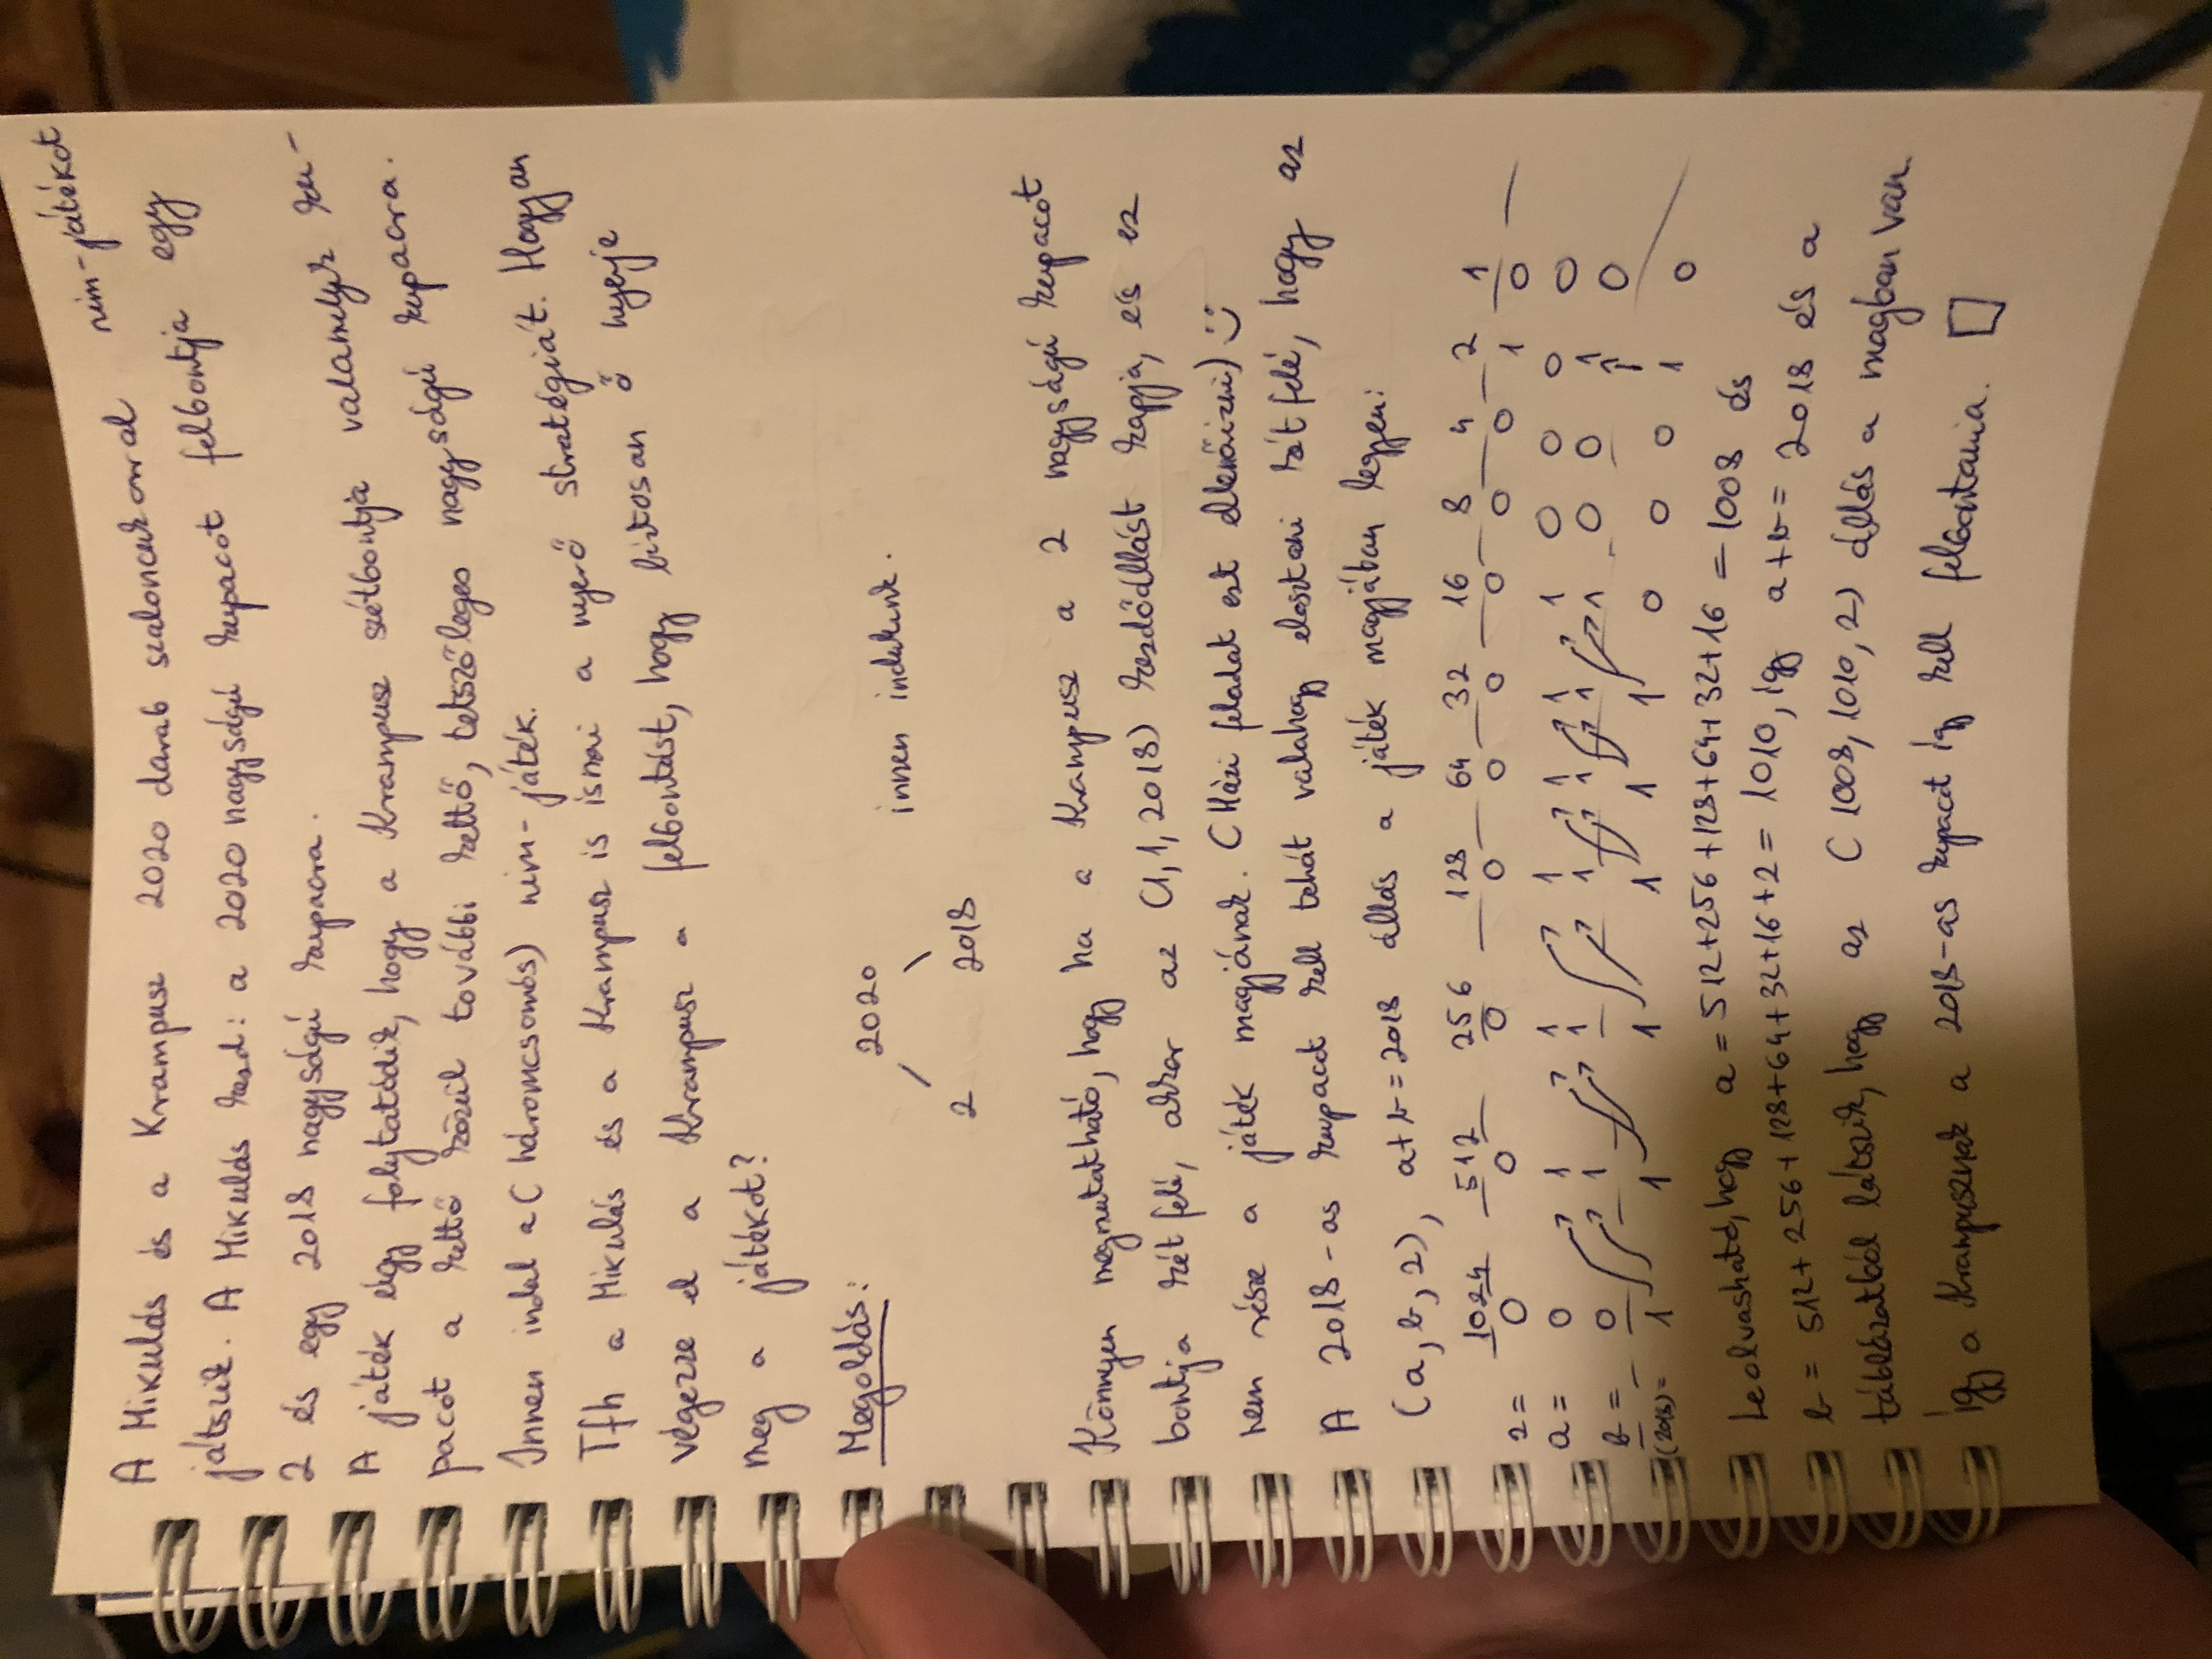 A Mikulás és a Krampusz 2020 darab szaloncukorral nim-játékot
játszik. A Mikulás kezd: a 2020 nagyságú kupacot felbontja egy
2 és egy 2018 nagyságú kupacra.
A játék úgy folytatódik, hogy a Krampusz szétbontja valamelyik ku-
pacot a kettő közül további kettő, tetszőleges nagyságú kupacra.
Innen indul a (háromcsomós) nim-játék.
Tfh a Mikulás és a Krampusz is ismeri a nyerő stratégiát. Hogyan
végezze el a Krampusz a felbontást, hogy biztosan ő nyerje
meg a játékot?
Megoldás:
2020
2 2018 innen indulunk.
Könnyen megmutatható, hogy ha a Krampusz a 2 nagyságú kupacot
bontja két felé, akkor az (1,1,2018) kezdőállást kapja, és ez
nem része a játék magjának. (Házi feladat ezt ellenőrizni) :)
A 2018-as kupacot kell tehát valahogy elosztani két felé, hogy az
(a,b,2), a+b=2018 állás a játék magjában legyen:
1024 512 256 128 64 32 16 8 4 2 1
2= 0 0 0 0 0 0 0 0 0 1 0
a= 0 1 1 1 1 1 1 0 0 0 0
b= 0 1 1 1 1 1 1 0 0 1 0
(2018)= 1 1 1 1 1 1 0 0 0 1 0
Leolvasható, hogy a=512+256+128+64+32+16=1008 és
b=512+256+128+64+32+16+2=1010, így a+b=2018 és a
táblázatból látszik, hogy az (1008,1010,2) állás a magban van.
Így a Krampusznak a 2018-as kupacot így kell felbontania. □